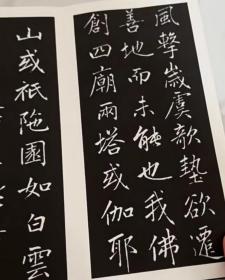 風擊歲虞欹墊欲遷
善地而未能也我佛
創四廟兩塔或伽耶
山或祇陁園如白雲